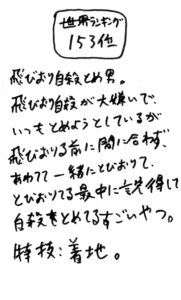 世界ランキング
153位
飛びおり自殺とめ男。
飛びおり自殺が大嫌いで、
いつもとめようとしているが
飛びおりる前に間に合わず、
あわてて一緒にとびおりて、
とびおりてる最中に説得して
自殺をとめてるすごいやつ。
特技：着地。